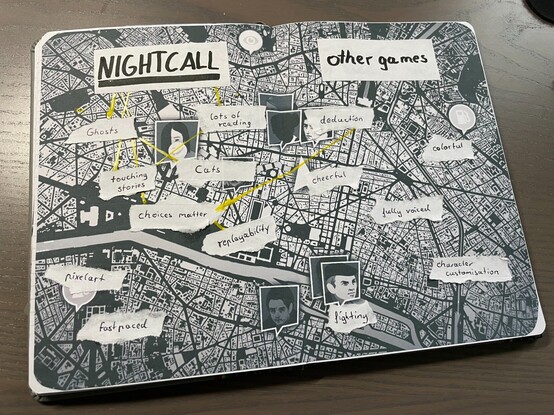 NIGHTCALL
other games
Ghosts
lots of
reading
deduction
colorful
touching
stories
Cats
cheerful
choices matter
replayability
fully voiced
pixelart
character
customisation
fastpaced
fighting